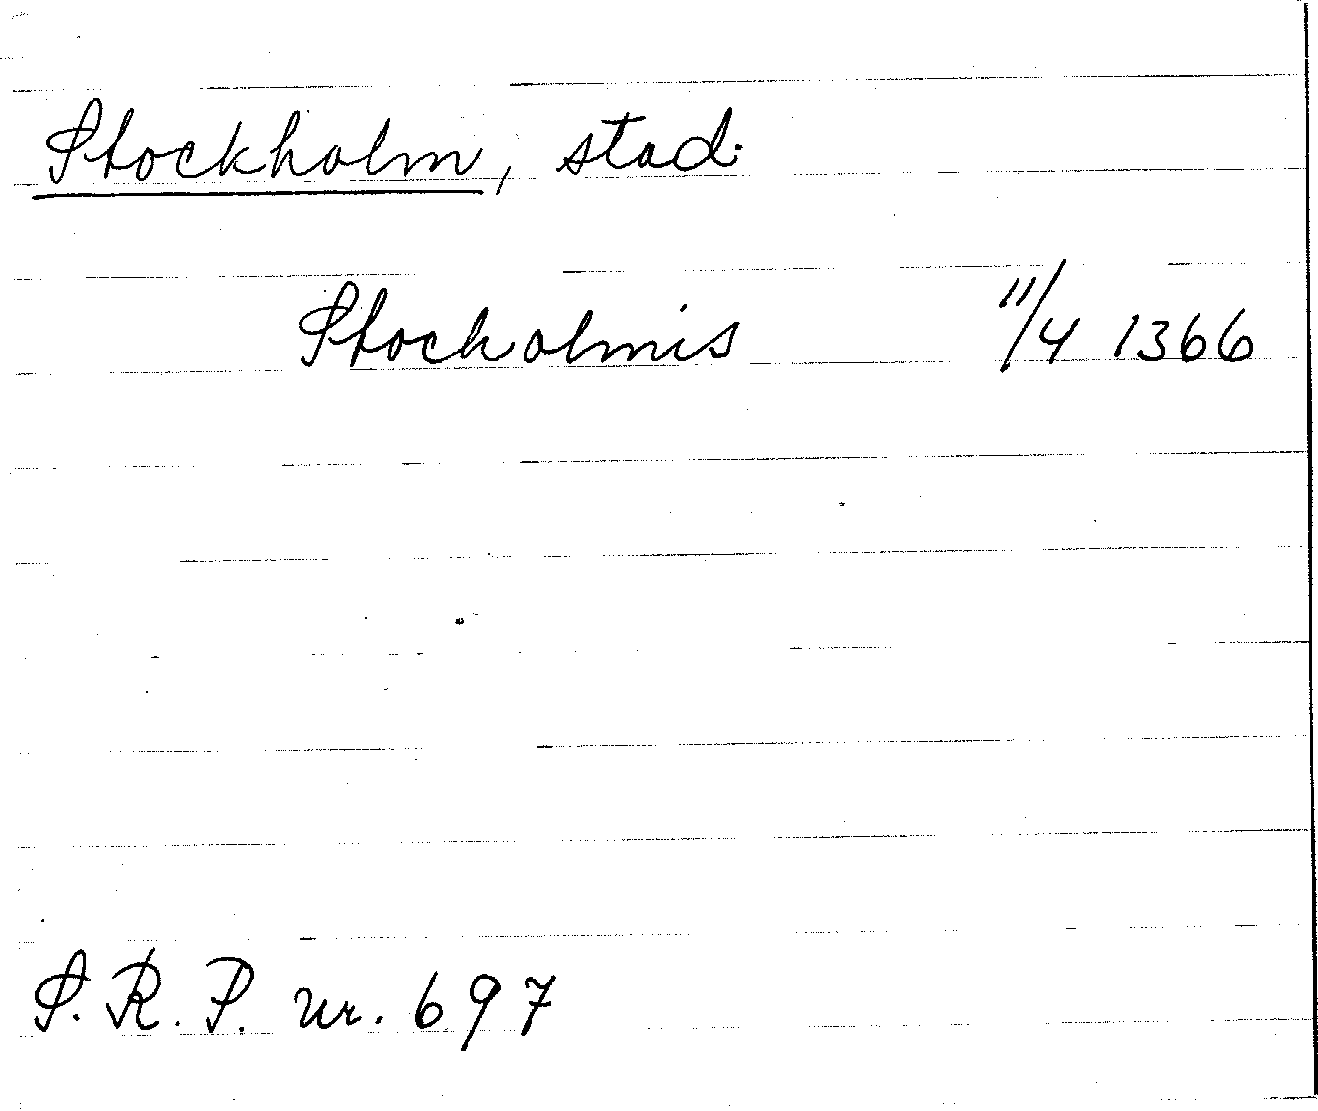 Stockholm, stad.
Stocholmis 11/4 1366
S. R. P. nr. 697